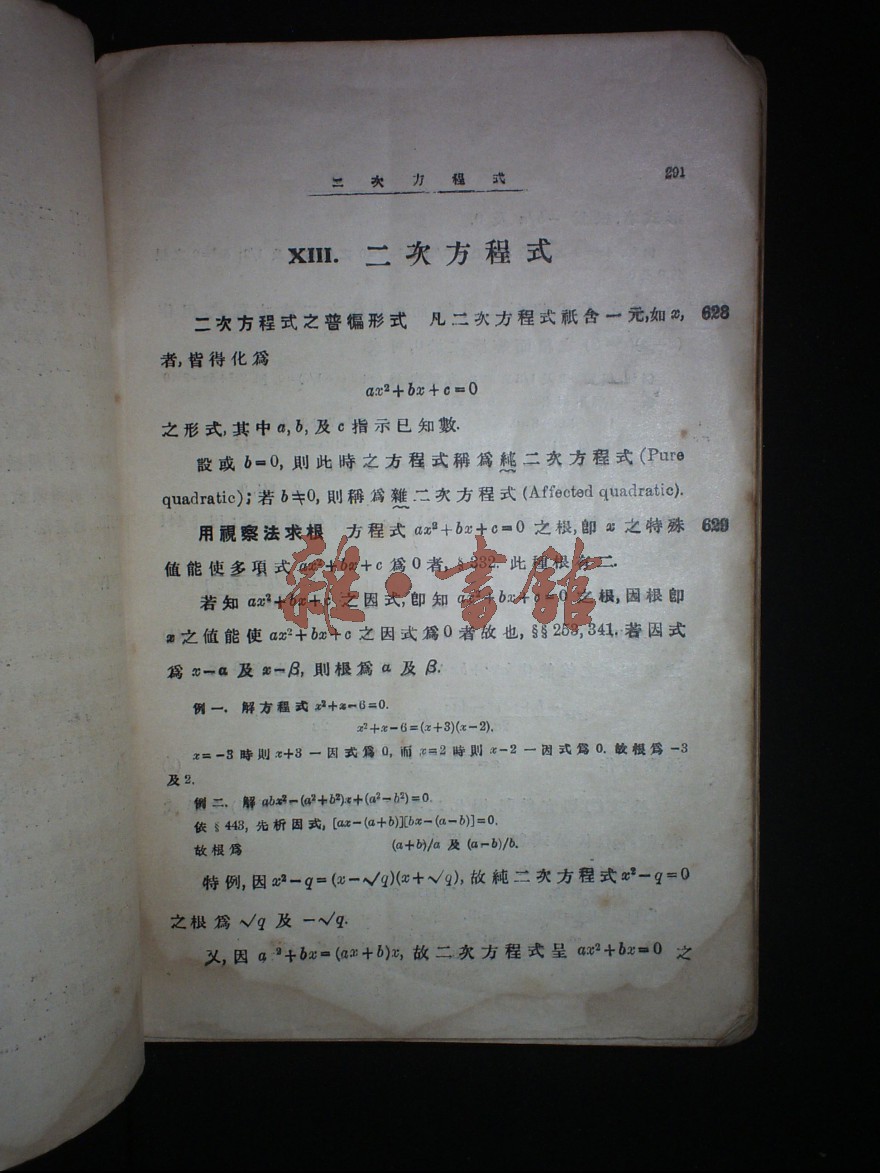 二次方程式 291
XIII. 二次方程式
二次方程式之普徧形式 凡二次方程式祇含一元,如 x, 628
者,皆得化爲
ax²+bx+c=0
之形式,其中 a, b, 及 c 指示已知數.
設或 b=0, 則此時之方程式稱爲純二次方程式 (Pure
quadratic); 若 b≠0, 則稱爲雜二次方程式 (Affected quadratic).
用視察法求根 方程式 ax²+bx+c=0 之根,卽 x 之特殊 629
値能使多項式 ax²+bx+c 爲 0 者, § 232. 此種根有二.
若知 ax²+bx+c 之因式,卽知 ax²+bx+c=0 之根,因根卽
x 之値能使 ax²+bx+c 之因式爲 0 者故也, §§ 253, 341. 若因式
爲 x−α 及 x−β, 則根爲 α 及 β.
例一. 解方程式 x²+x−6=0.
x²+x−6=(x+3)(x−2).
x=−3 時則 x+3 一因式爲 0, 而 x=2 時則 x−2 一因式爲 0. 故根爲 −3
及 2.
例二. 解 abx²−(a²+b²)x+(a²−b²)=0.
依 § 443, 先析因式, [ax−(a+b)][bx−(a−b)]=0.
故根爲 (a+b)/a 及 (a−b)/b.
特例,因 x²−q=(x−√q)(x+√q), 故純二次方程式 x²−q=0
之根爲 √q 及 −√q.
又,因 a ²+bx=(ax+b)x, 故二次方程式呈 ax²+bx=0 之
雜·書館